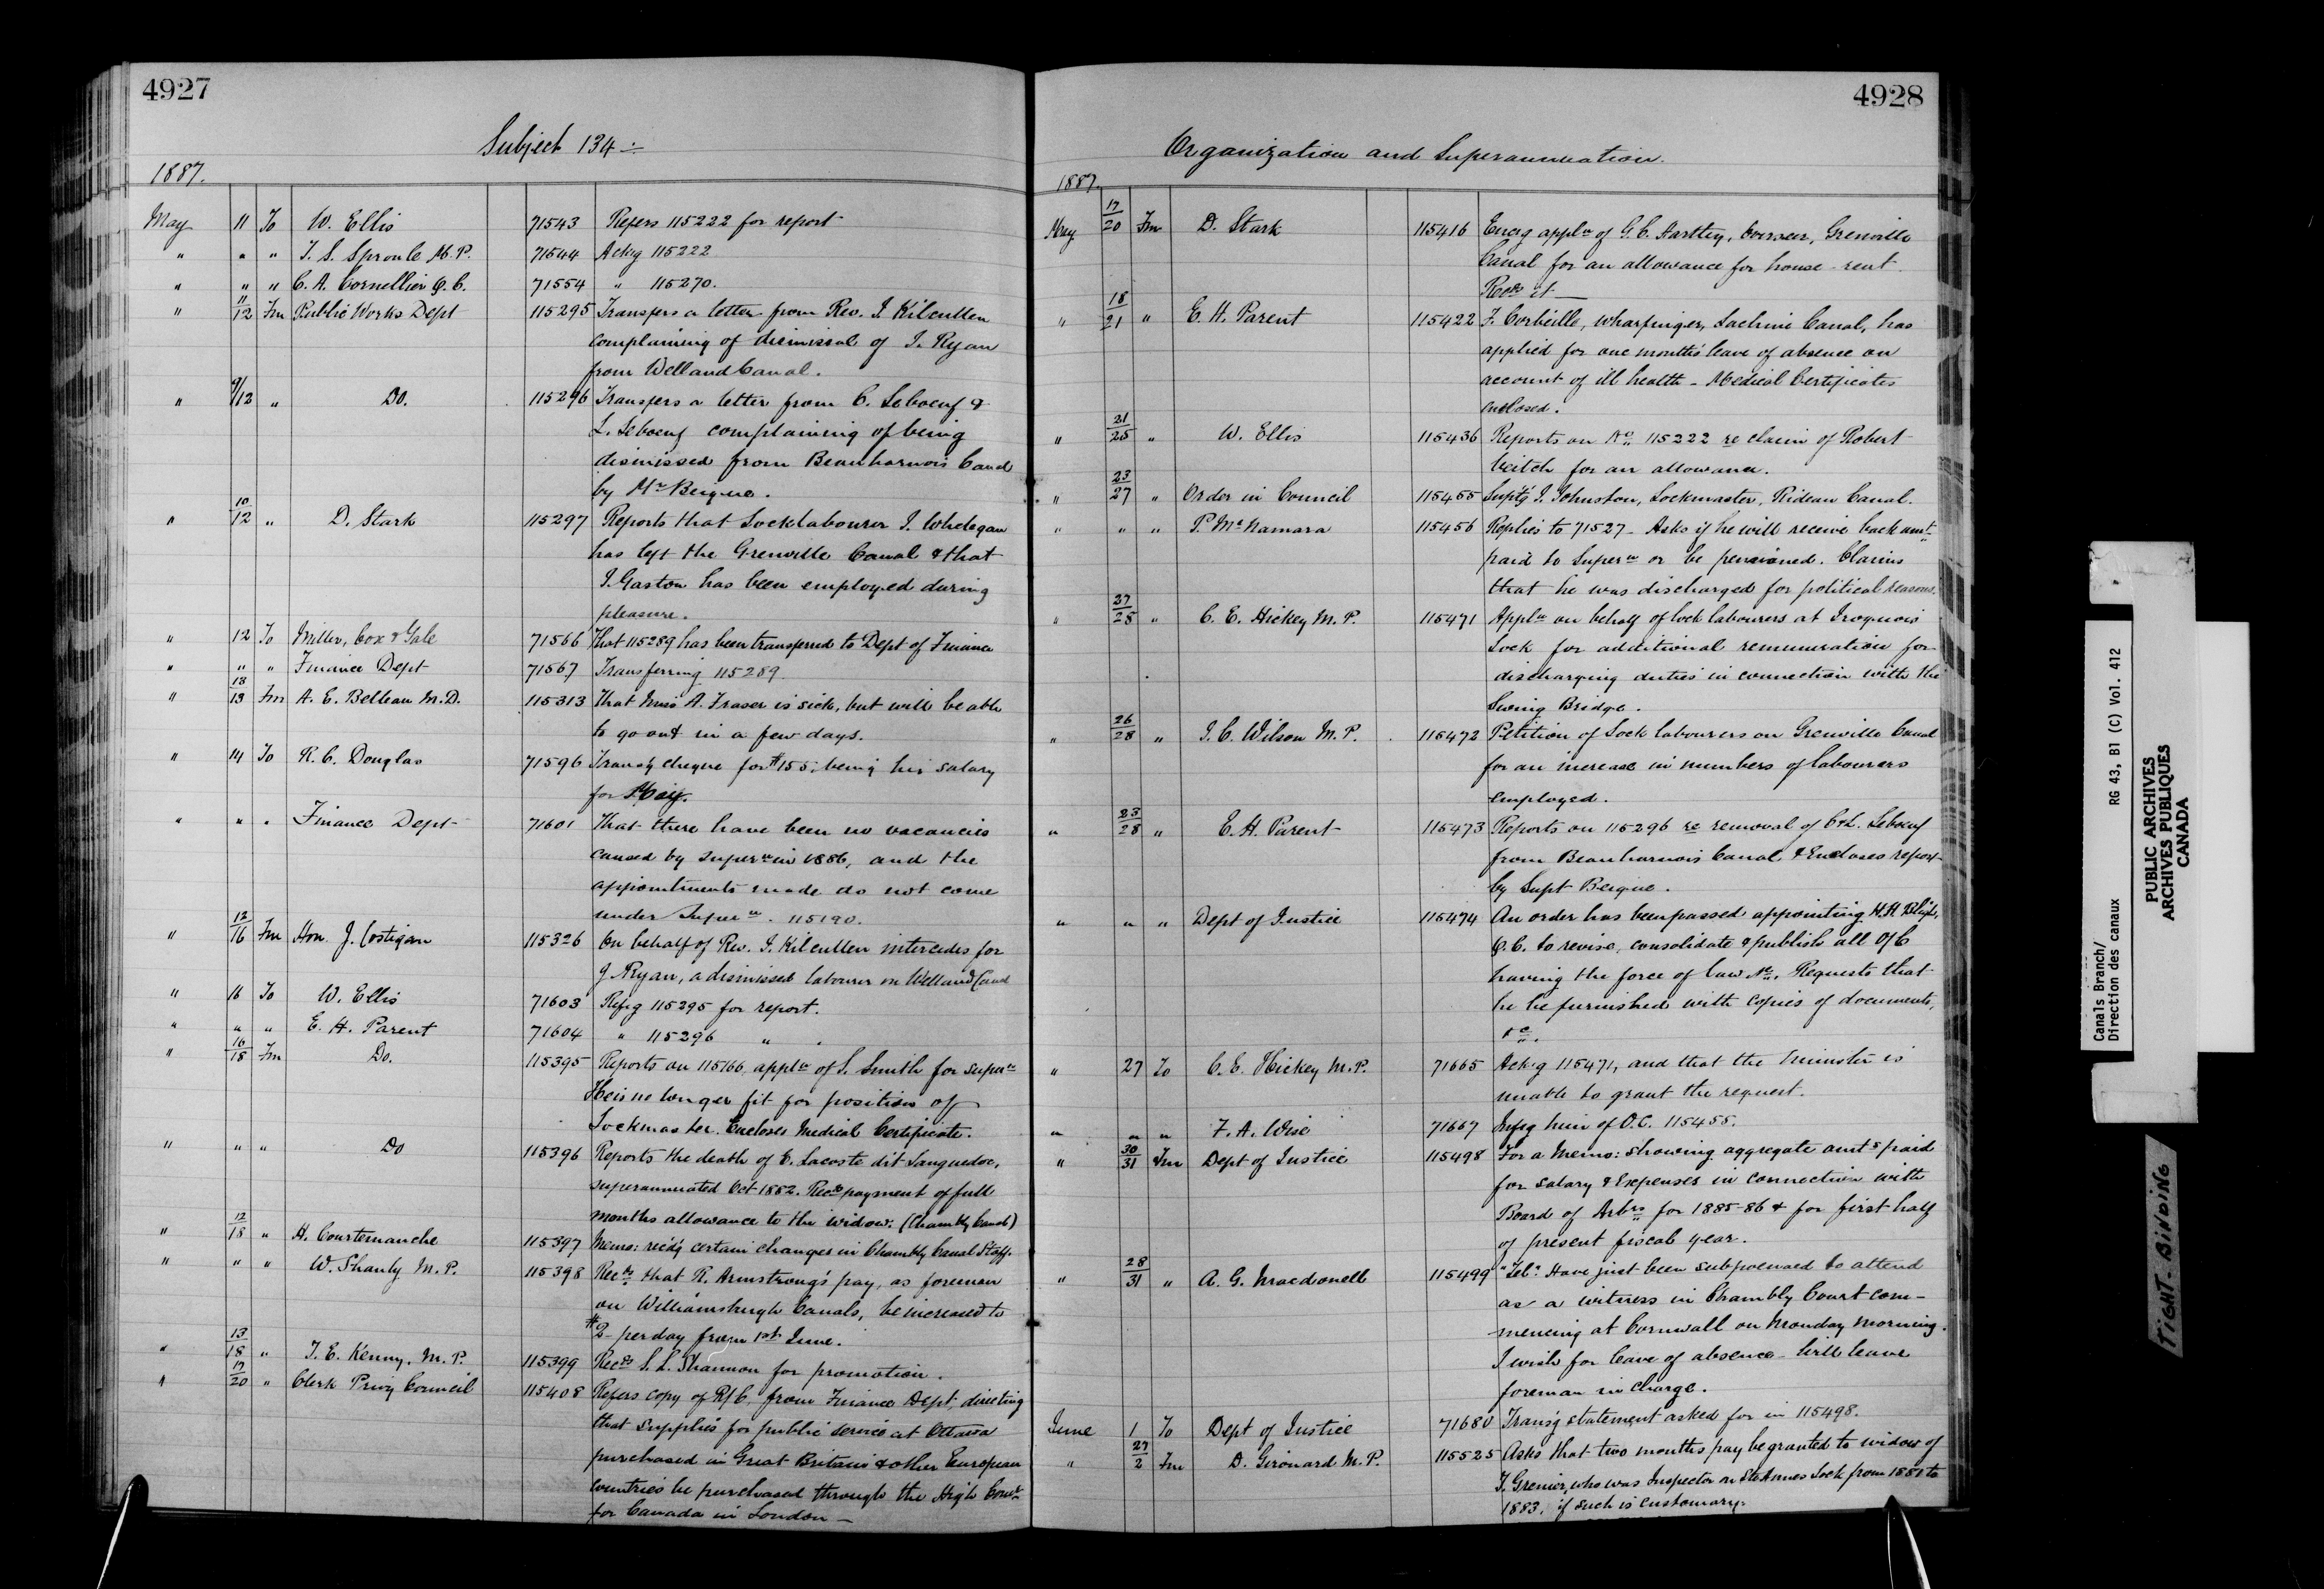 4927
Subject 134
1887.
May 11 To W. Ellis 71543 Refers 115222 for report
" " " T. S. Sproule M.P. 71544 Ackg 115222
" " " C. A. Cornellier Q.C. 71554 " 115270.
" 11/12 Fm Public Works Dept 115295 Transfers a letter from Rev. J. Kilcullen
complaining of dismissal of J. Ryan
from Welland Canal.
" 9/12 " Do. 115296 Transfers a letter from C. Leboeuf &
L. Leboeuf complaining of being
dismissed from Beauharnois Canal
by Mr Beique.
" 10/12 " D. Stark 115297 Reports that Locklabourer J. Whelegan
has left the Grenville Canal & that
J. Gaston has been employed during
pleasure.
" 12 To Miller, Cox & Gale 71566 That 115289 has been transferred to Dept of Finance
" " " Finance Dept 71567 Transferring 115289
" 13/13 Fm A. E. Belleau M.D. 115313 That Miss A. Fraser is sick, but will be able
to go out in a few days.
" 14 To R. C. Douglas 71596 Transg cheque for $155, being his salary
for May.
" " " Finance Dept 71601 That there have been no vacancies
caused by supern in 1886, and the
appointments made do not come
under Supern. 115190.
" 12/16 Fm Hon. J. Costigan 115326 On behalf of Rev. J. Kilcullen intercedes for
J Ryan, a dismissed labourer on Welland Canal
" 16 To W. Ellis 71603 Refg 115295 for report.
" " " E. H. Parent 71604 " 115296 "
" 16/18 Fm Do. 115395 Reports on 115166, appln of S. Smith for supern
He is no longer fit for position of
Lockmaster. Encloses Medical Certificate.
" " " Do 115396 Reports the death of E. Lacoste dit Languedoc,
superannuated Oct 1882. Recds payment of full
months allowance to the widow. (Chambly Canal)
" 12/18 " H. Courtemanche 115397 Memo: recd'g certain changes in Chambly Canal Staff.
" " " W. Shanly M.P. 115398 Recds that R. Armstrong's pay, as foreman
on Williamsburgh Canals, be increased to
$2 per day from 1st June.
" 13/18 " T. E. Kenny. M.P. 115399 Recds S. L. Shannon for promotion.
" 19/20 " Clerk Privy Council 115408 Refers copy of R/C. from Finance Dept, directing
that supplies for public service at Ottawa
purchased in Great Britain & other European
countries be purchased through the High Comr
for Canada in London —
4928
Organization and Superannuation.
1887.
May 17/20 Fm D. Stark 115416 Encg appln of G. C. Hartley, Overseer, Grenville
Canal for an allowance for house-rent
Recds it —
" 18/21 " E. H. Parent 115422 F. Corbeille, Wharfinger, Lachine Canal, has
applied for one month's leave of absence on
account of ill health - Medical Certificates
enclosed.
" 21/25 " W. Ellis 115436 Reports on No 115222 re claim of Robert
Veitch for an allowance.
" 23/27 " Order in Council 115455 Supt'g J. Johnston, Lockmaster, Rideau Canal.
" " " P. McNamara 115456 Replies to 71527 - Asks if he will receive back amt
paid to Supern or be pensioned. Claims
that he was discharged for political reasons.
" 27/28 " C. E. Hickey M.P. 115471 Appln on behalf of lock labourers at Iroquois
Lock for additional remuneration for
discharging duties in connection with the
Swing Bridge.
" 26/28 " J. C. Wilson M.P. 115472 Petition of Lock labourers on Grenville Canal
for an increase in numbers of labourers
employed.
" 23/28 " E. H. Parent 115473 Reports on 115296 re removal of C & L. Leboeuf
from Beauharnois Canal & Encloses report
by Supt Beique.
" " " Dept of Justice 115474 An order has been passed appointing H. H. Bligh,
Q.C. to revise, consolidate & publish all O/C
having the force of law &c. Requests that
he be furnished with copies of documents,
&c.
" 27 To C. E. Hickey M.P. 71665 Ack'g 115471, and that the Minister is
unable to grant the request.
" " " F. A. Wise 71667 Infg him of O.C. 115455.
" 30/31 Fm Dept of Justice 115498 For a Memo: showing aggregate amts paid
for salary & Expenses in connection with
Board of Arbrs for 1885-86 & for first half
of present fiscal year.
" 28/31 " A. G. Macdonell 115499 "Tel." Have just been subpoenaed to attend
as a witness in Chambly Court com-
mencing at Cornwall on Monday morning.
I wish for leave of absence - Will leave
foreman in charge.
June 1 To Dept of Justice 71680 Trans'g statement asked for in 115498.
" 27/2 Fm D. Girouard M.P. 115525 Asks that two months pay be granted to widow of
F. Grenier, who was Inspector on Ste Annes Lock from 1881 to
1883, if such is customary.
Canals Branch/
Direction des canaux RG 43, B1 (C) Vol. 412
PUBLIC ARCHIVES
ARCHIVES PUBLIQUES
CANADA
TIGHT-BINDING